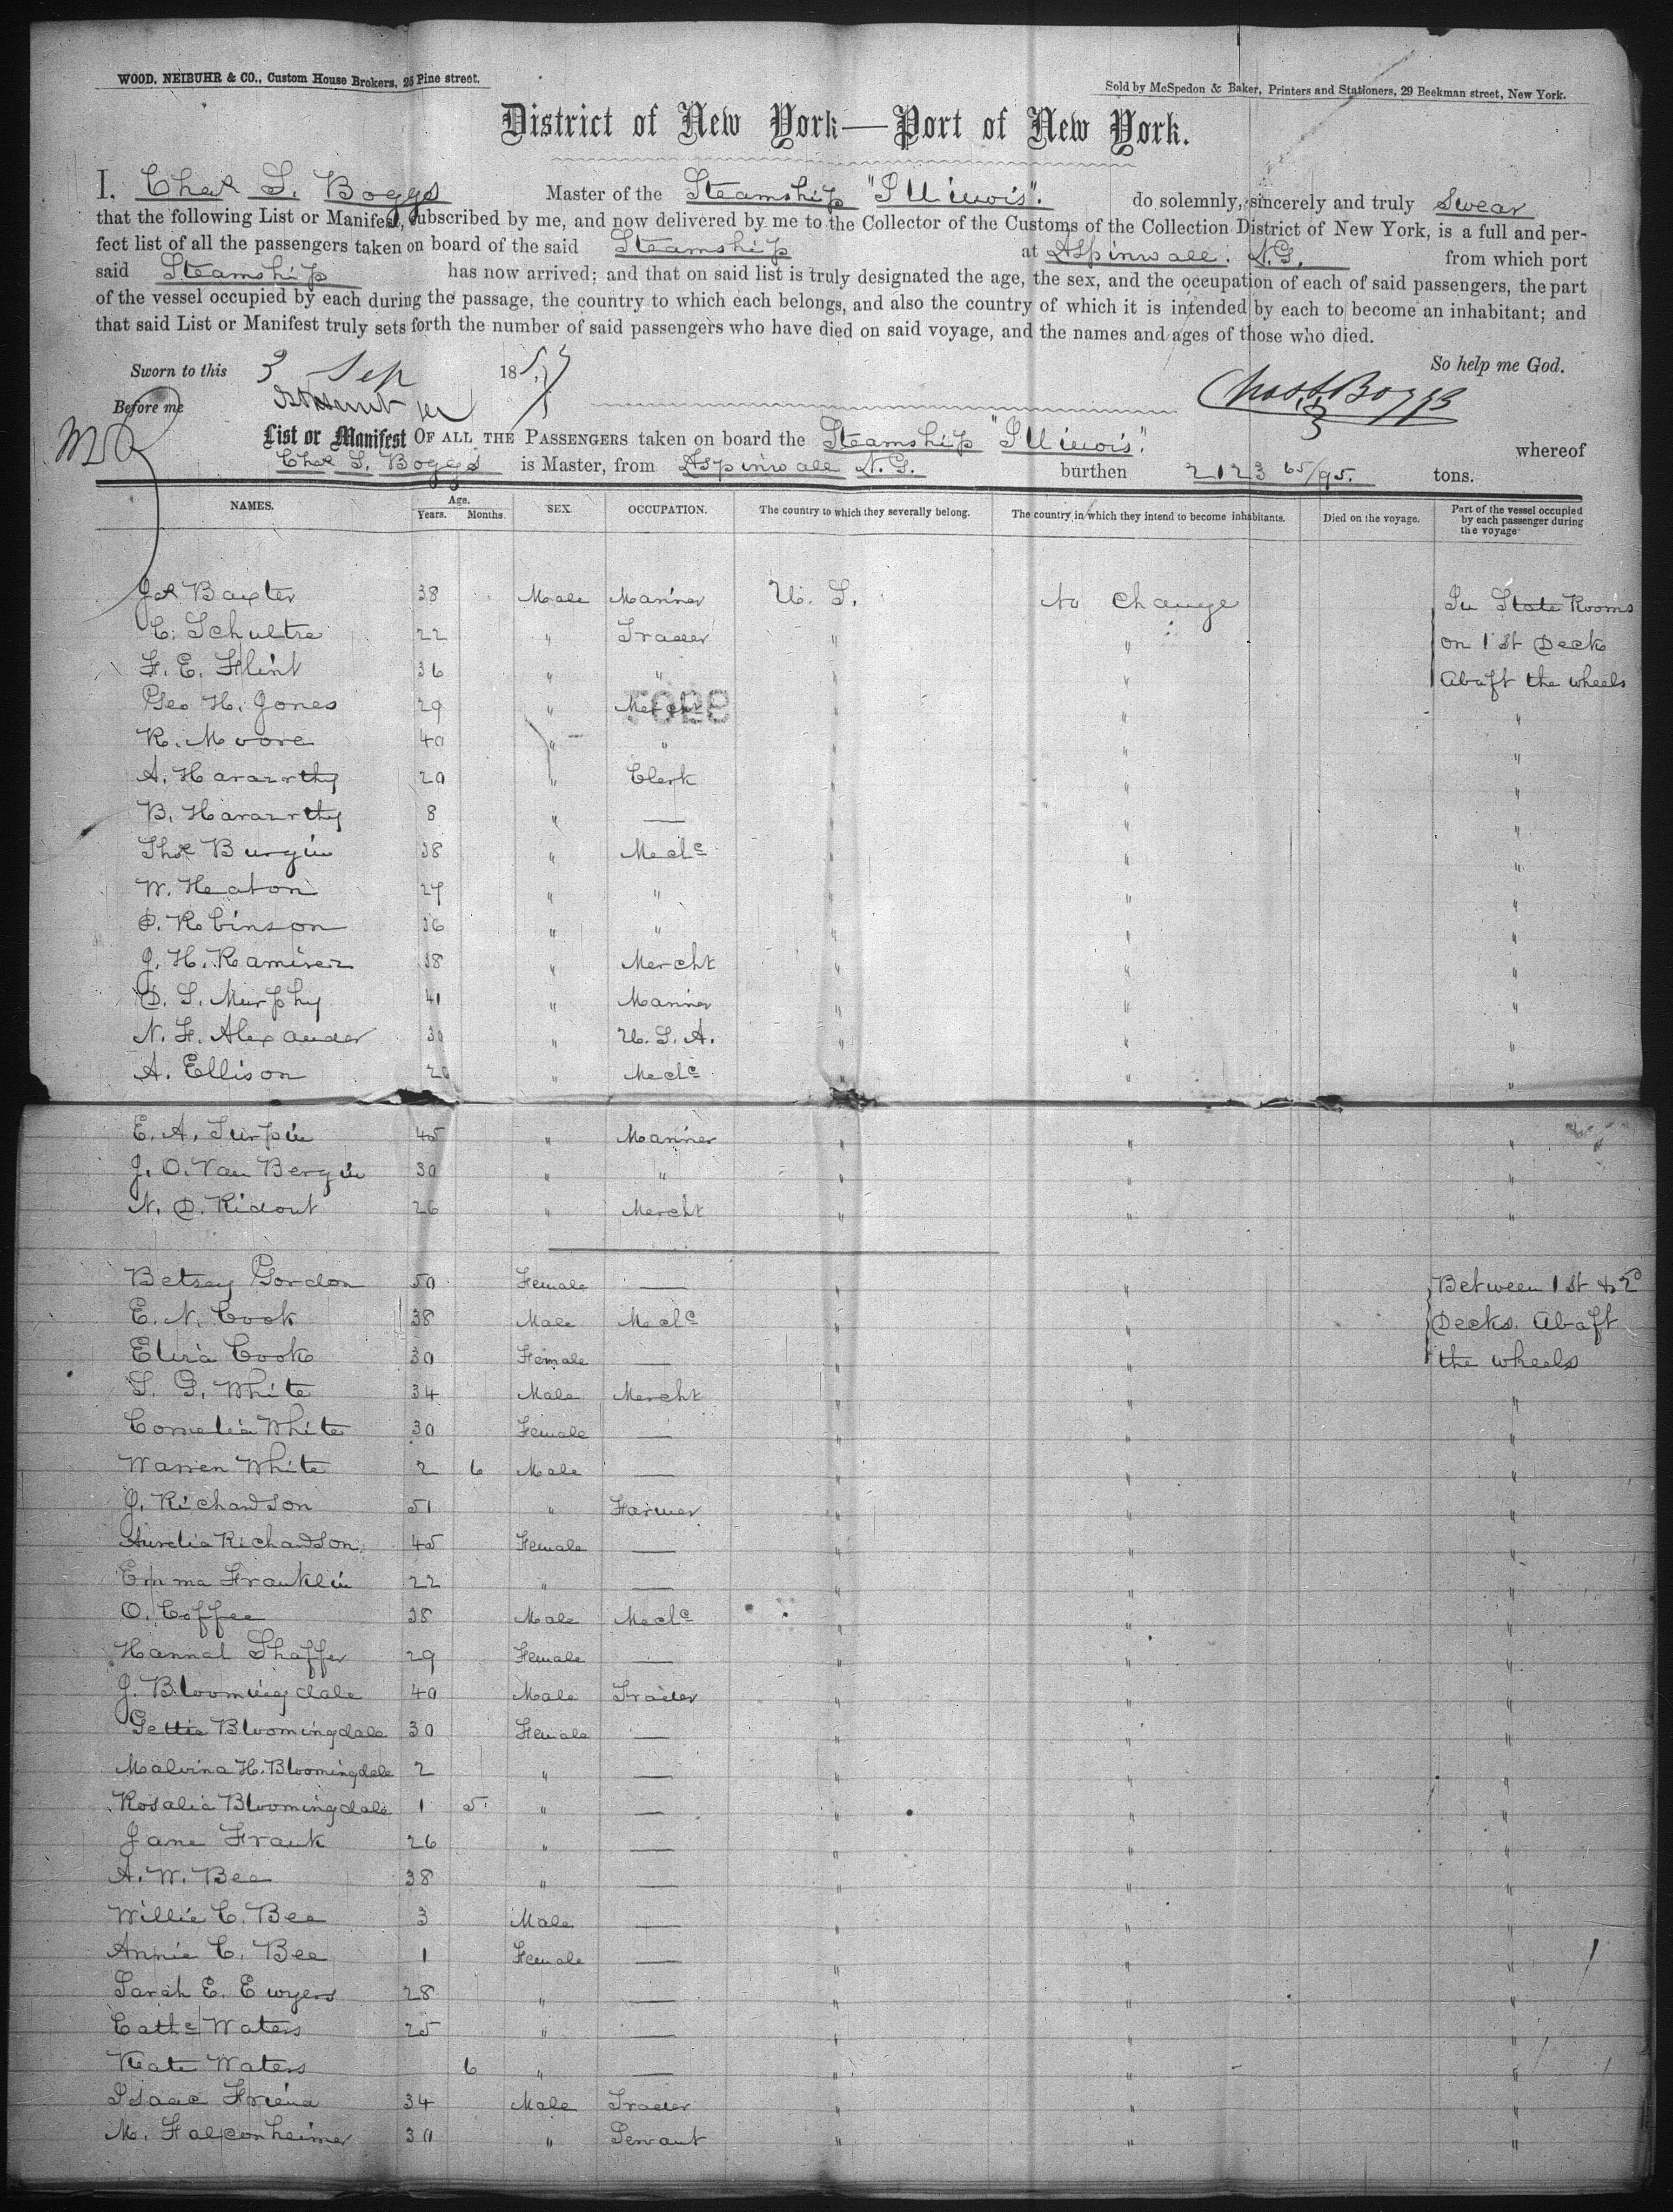 WOOD, NEIBUHR & CO., Custom House Brokers, 25 Pine street.
Sold by McSpedon & Baker, Printers and Stationers, 29 Beekman street, New York.
District of New York—Port of New York.
I, Chas S. Boggs Master of the Steamship "Illinois". do solemnly, sincerely and truly Swear
that the following List or Manifest, subscribed by me, and now delivered by me to the Collector of the Customs of the Collection District of New York, is a full and per-
fect list of all the passengers taken on board of the said Steamship at Aspinwall. N.G. from which port
said Steamship has now arrived; and that on said list is truly designated the age, the sex, and the occupation of each of said passengers, the part
of the vessel occupied by each during the passage, the country to which each belongs, and also the country of which it is intended by each to become an inhabitant; and
that said List or Manifest truly sets forth the number of said passengers who have died on said voyage, and the names and ages of those who died.
Sworn to this 3 Sep 1857 So help me God.
Before me Chas. S. Boggs
List or Manifest OF ALL THE PASSENGERS taken on board the Steamship "Illinois". whereof
Chas S. Boggs is Master, from Aspinwall N.G. burthen 2123 65/95. tons.
NAMES. Age. Years. Months. SEX. OCCUPATION. The country to which they severally belong. The country in which they intend to become inhabitants. Died on the voyage. Part of the vessel occupied by each passenger during the voyage
Js Baxter 38 Male Mariner U. S. No Change In State Rooms
C. Schultze 22 " Trader " " on 1st Deck
F. E. Flint 36 " " " " Abaft the wheels
Geo H. Jones 29 " " " "
R. Moore 40 " " " " "
A. Harazrthy 20 " Clerk " " "
B. Harazrthy 8 " — " " "
Thos Burgin 38 " Mechc " " "
W. Heaton 27 " " " " "
D. Robinson 36 " " " " "
J. H. Ramirez 38 " Mercht " " "
D. S. Murphy 41 " Mariner " " "
N. F. Alexander 30 " U. S. A. " " "
A. Ellison 20 " Mechc " " "
E. A. Turpin 45 " Mariner " " "
J. O. Van Bergin 30 " " " "
N. D. Ridout 26 " Mercht " " "
Betsey Gordon 50 Female — " " Between 1st & 2d
E. N. Cook 38 Male Mechc " " Decks. Abaft
Eliza Cook 30 Female — " " the wheels
S. G. White 34 Male Mercht " " "
Cornelia White 30 Female — " " "
Warren White 2 6 Male — " " "
J. Richardson 51 " Farmer " " "
Aurelia Richardson 45 Female — " " "
Emma Franklin 22 " — " " "
O. Coffee 38 Male Mechc " " "
Hannah Shaffer 29 Female — " " "
J. Bloomingdale 40 Male Trader " " "
Gettie Bloomingdale 30 Female — " " "
Malvina H. Bloomingdale 2 " — " " "
Rosalia Bloomingdale 1 5 " — " " "
Jane Frank 26 " — " " "
A. W. Bee 38 " — " " "
Willie C. Bee 3 Male — " " "
Annie C. Bee 1 Female — " " "
Sarah E. Ewyers 28 " — " " "
Cathe Waters 25 " — " " "
Kate Waters 6 " — " " "
Isaac Friend 34 Male Trader " " "
M. Falconheimer 30 " Servant " " "